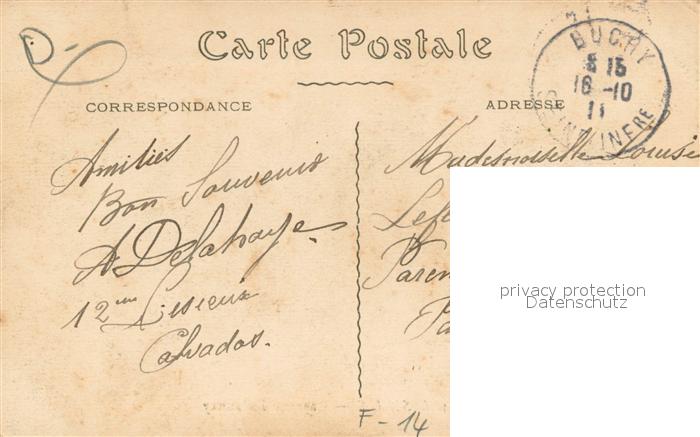 D-
Carte Postale
CORRESPONDANCE
ADRESSE
BUCHY
8 15
16 -10
11
SEINE INFRE
Amitiés
Bon Souvenir
A Delahaye
12 Lisieux
Calvados.
Mademoiselle Louise
Lef
Paren
Pa
privacy protection
Datenschutz
F - 14